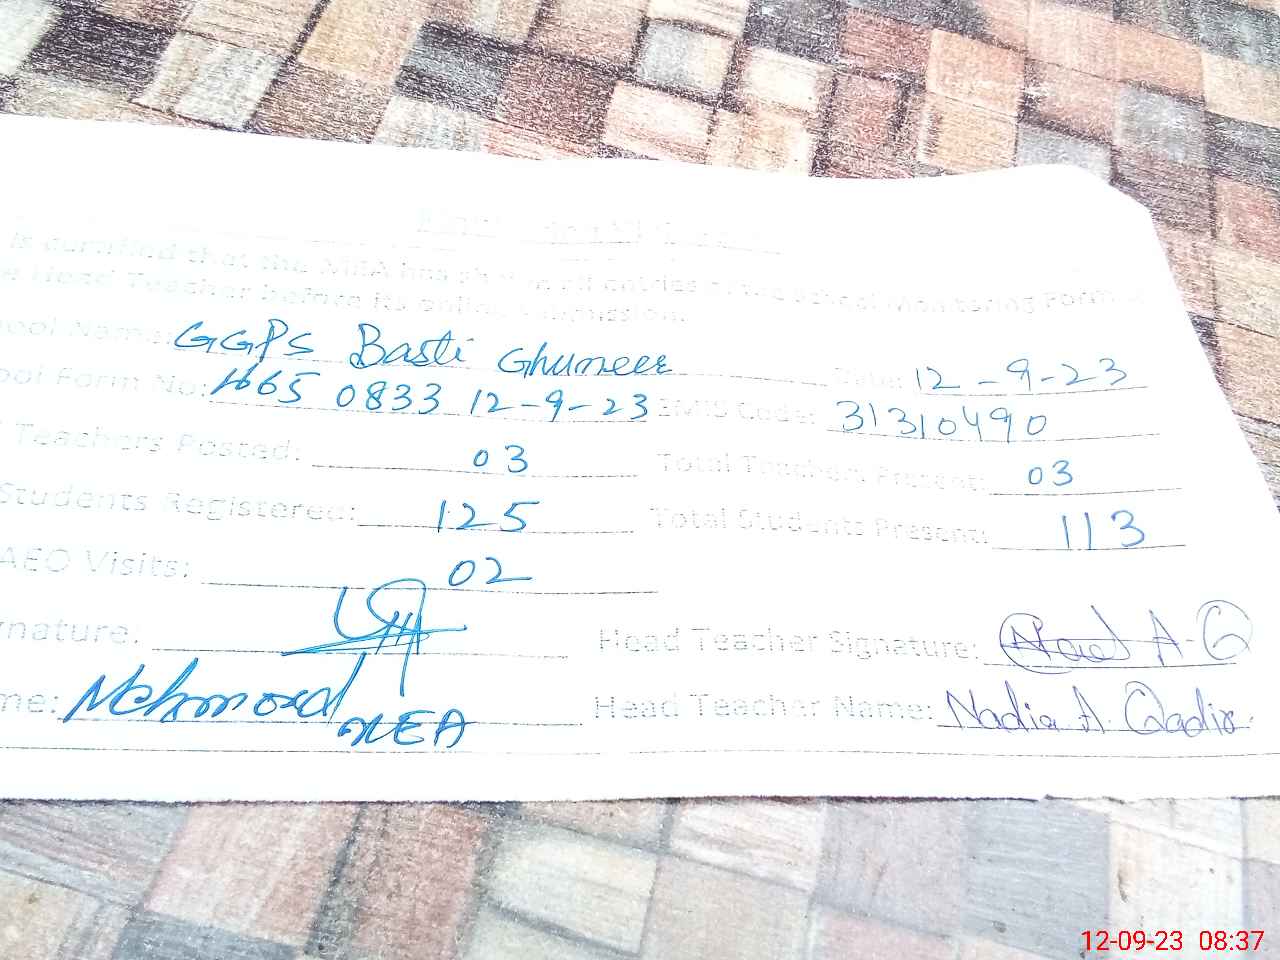 is certified that the MEA has shown all entries of the School Monitoring Form
Head Teacher before its online submission.
ool Name: GGPS Basti Ghumeer Date: 12-9-23
ool Form No: 1665 0833 12-9-23 EMIS Code: 31310490
Teachers Posted: 03 Total Teachers Present: 03
Students Registered: 125 Total Students Present: 113
AEO Visits: 02
nature: Head Teacher Signature: A.Q
me: Mehmood MEA Head Teacher Name: Nadia A. Qadir
12-09-23 08:37